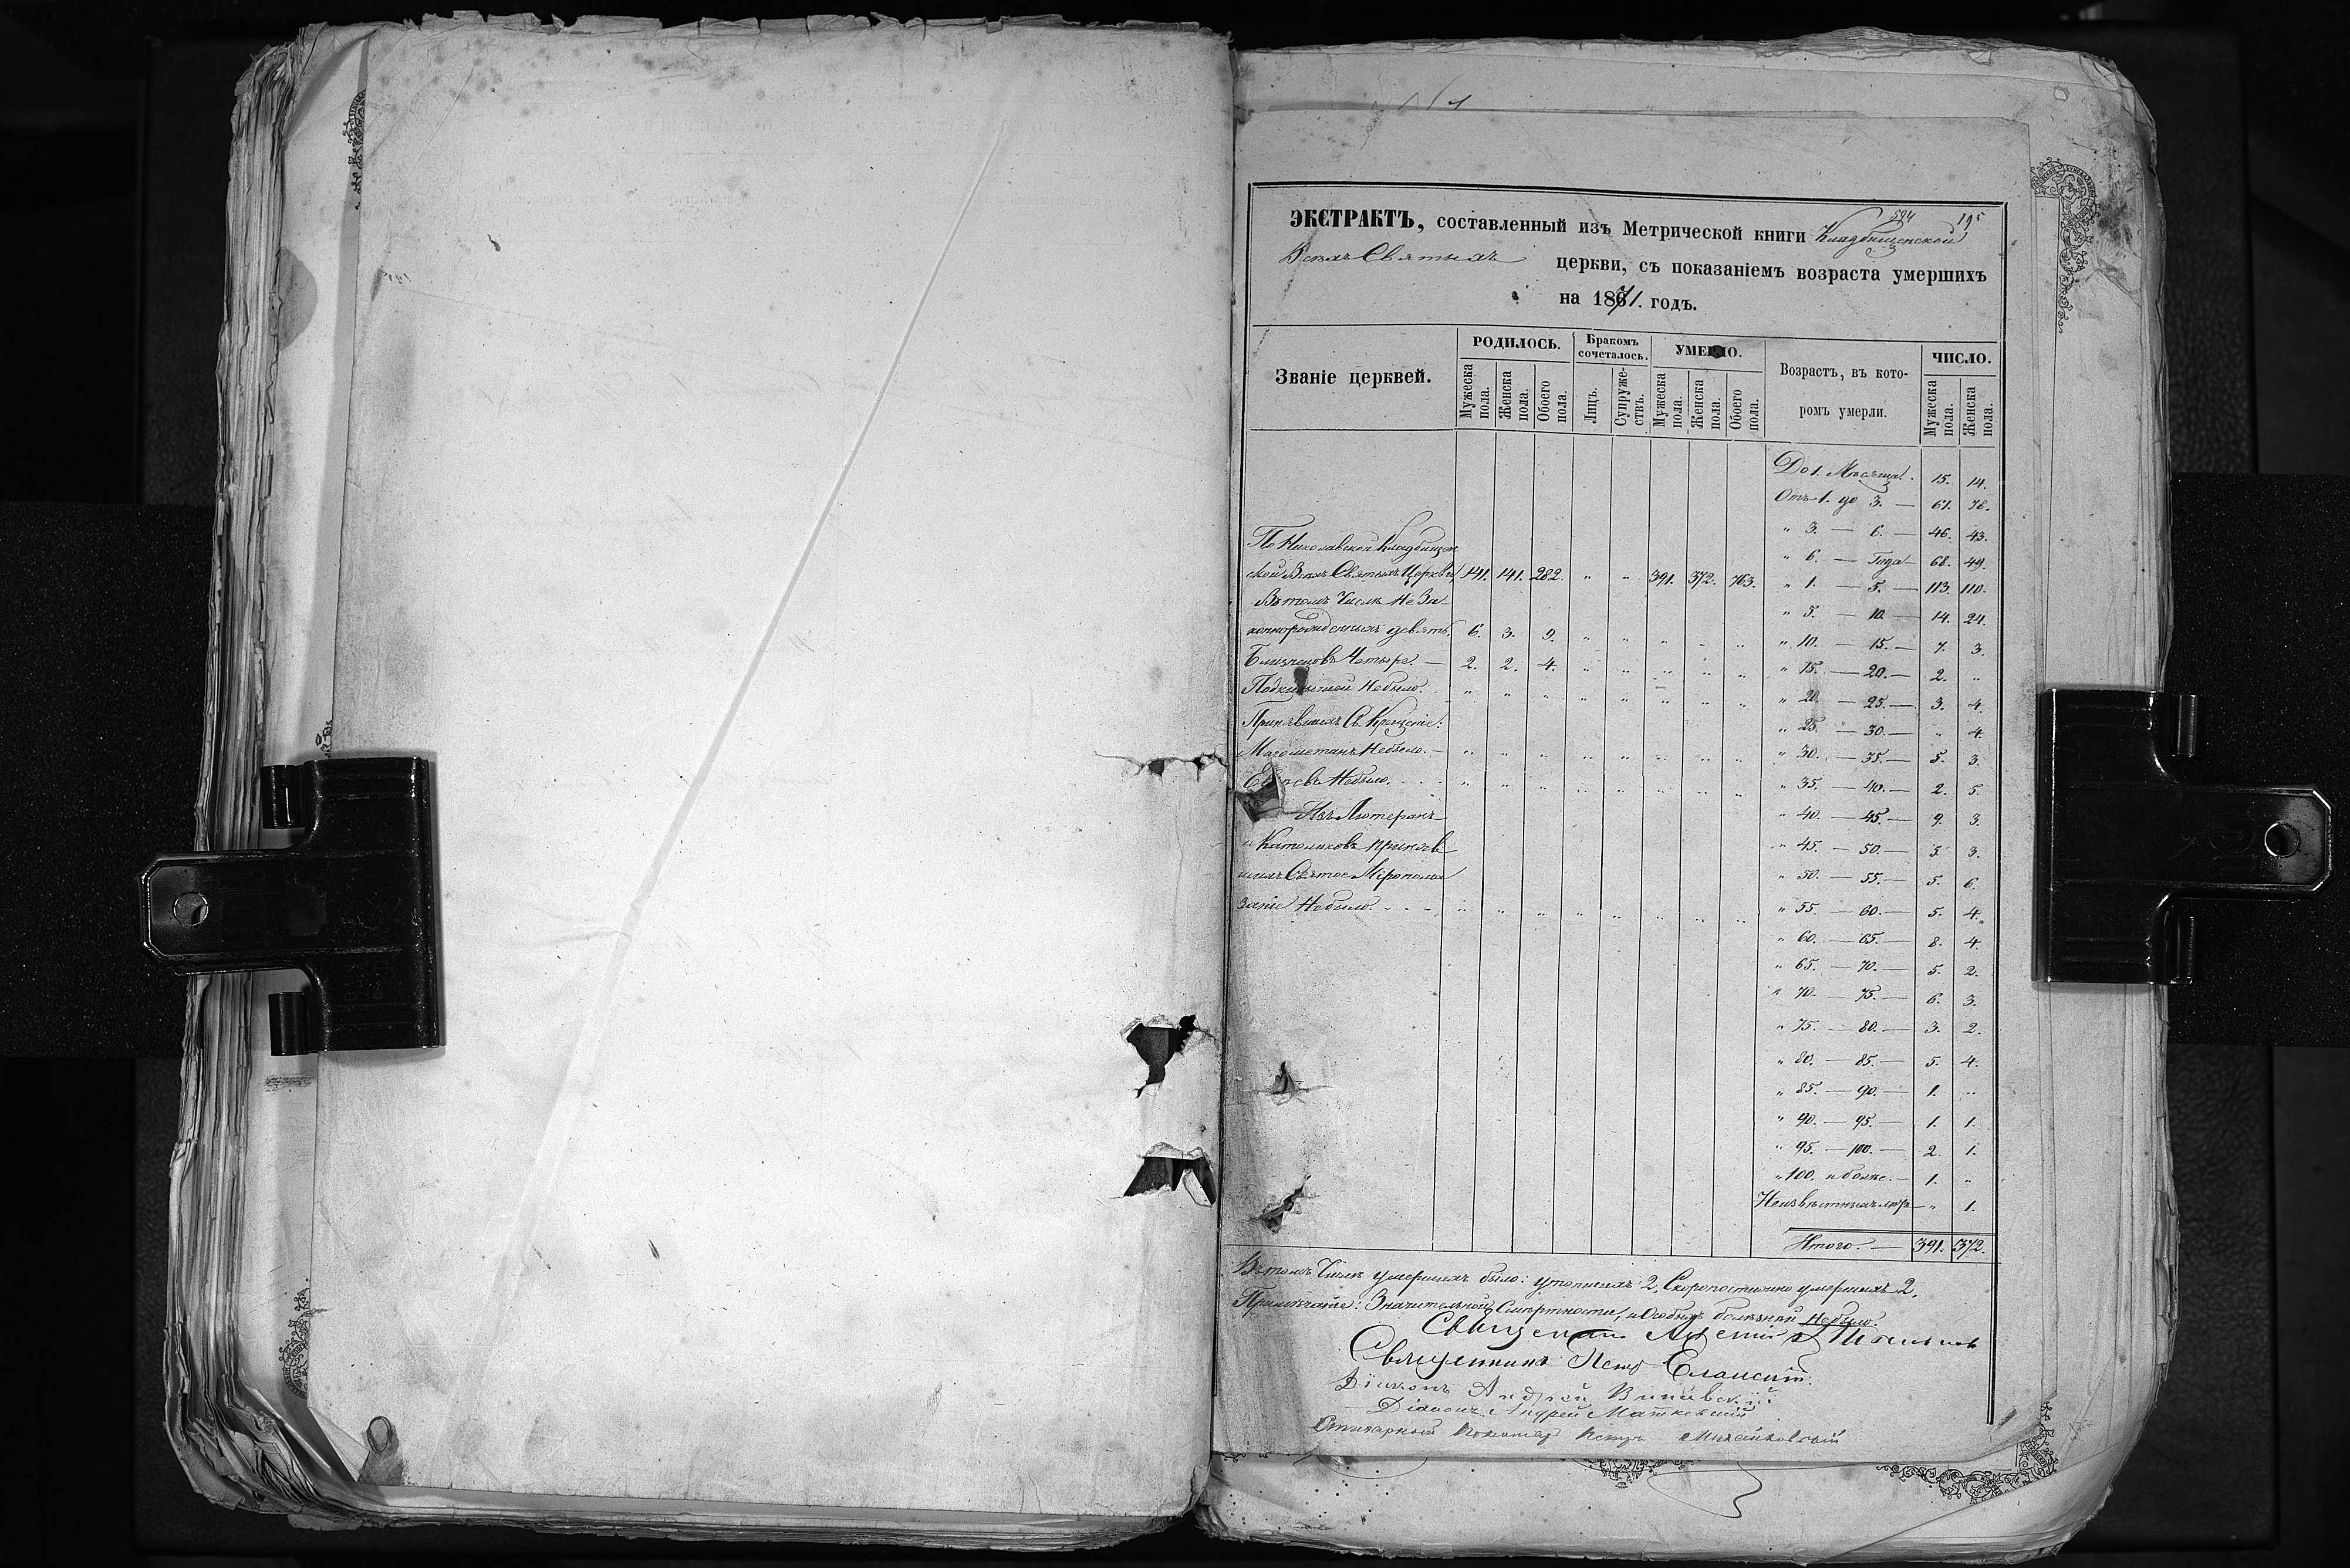 594 195
ЭКСТРАКТЪ, составленный изъ Метрической книги Кладбищенской
Всехъ Святыхъ церкви, съ показаніемъ возраста умершихъ
на 1871. годъ.
Званіе церквей. РОДИЛОСЬ. Бракомъ сочеталось. УМЕРЛО. Возрастъ, въ которомъ умерли. ЧИСЛО.
Мужеска пола. Женска пола. Обоего пола. Лицъ. Супружествъ. Мужеска пола. Женска пола. Обоего пола. Мужеска пола. Женска пола.
По Николавской Кладбищен
ской Всехъ Святыхъ Церкви 141. 141. 282. " " 391. 372. 763.
Въ томъ Числѣ Не За-
коннорожденныхъ девять. 6. 3. 9. " " " " "
Близнецовъ Четыре. — 2. 2. 4. " " " " "
Подкидышей Небыло. " " " " " " " "
Принявшихъ Св. Крещеніе:
Магометанъ Небыло. — " " " " " " " "
Евреевъ Небыло. " " " " " " " "
Изъ Лютеранъ
и Католиковъ приняв
шихъ Святое Мѵропома
заніе Небыло. " " " " " " " "
До 1. Мѣсяца. 15. 14.
Отъ 1. до 3. — 61. 78.
" 3. — 6. — 46. 43.
" 6. — Года — 68. 49.
" 1. — 5. — 113. 110.
" 5. — 10. 14. 24.
" 10. — 15. — 7. 3.
" 15. — 20. — 2. "
" 20. — 25. — 3. 4.
" 25. — 30. — " 4.
" 30. — 35. — 5. 3.
" 35. — 40. — 2. 5.
" 40. — 45. — 9. 3.
" 45. — 50. — 5. 3.
" 50. — 55. — 5. 6.
" 55. — 60. — 5. 4.
" 60. — 65. — 8. 4.
" 65. — 70. — 5. 2.
" 70. — 75. — 6. 3.
" 75. — 80. — 3. 2.
" 80. — 85. — 5. 4.
" 85. — 90. — 1. "
" 90. — 95. — 1. 1.
" 95. — 100. — 2. 1.
" 100. и болѣе. — 1. "
Неизвѣстныхъ лѣтъ — " 1.
Итого. — 391. 372.
Въ томъ Числѣ умершихъ было: утопшихъ 2, Скоропостижно умершихъ 2.
Примѣчаніе: Значительной Смертности, и Особыхъ болѣзней Небыло.
Священникъ
Священникъ Петръ
Діаконъ Андрей
Діаконъ Андрей Матковскій
Стихарный Пономарь Петръ Михайловскій